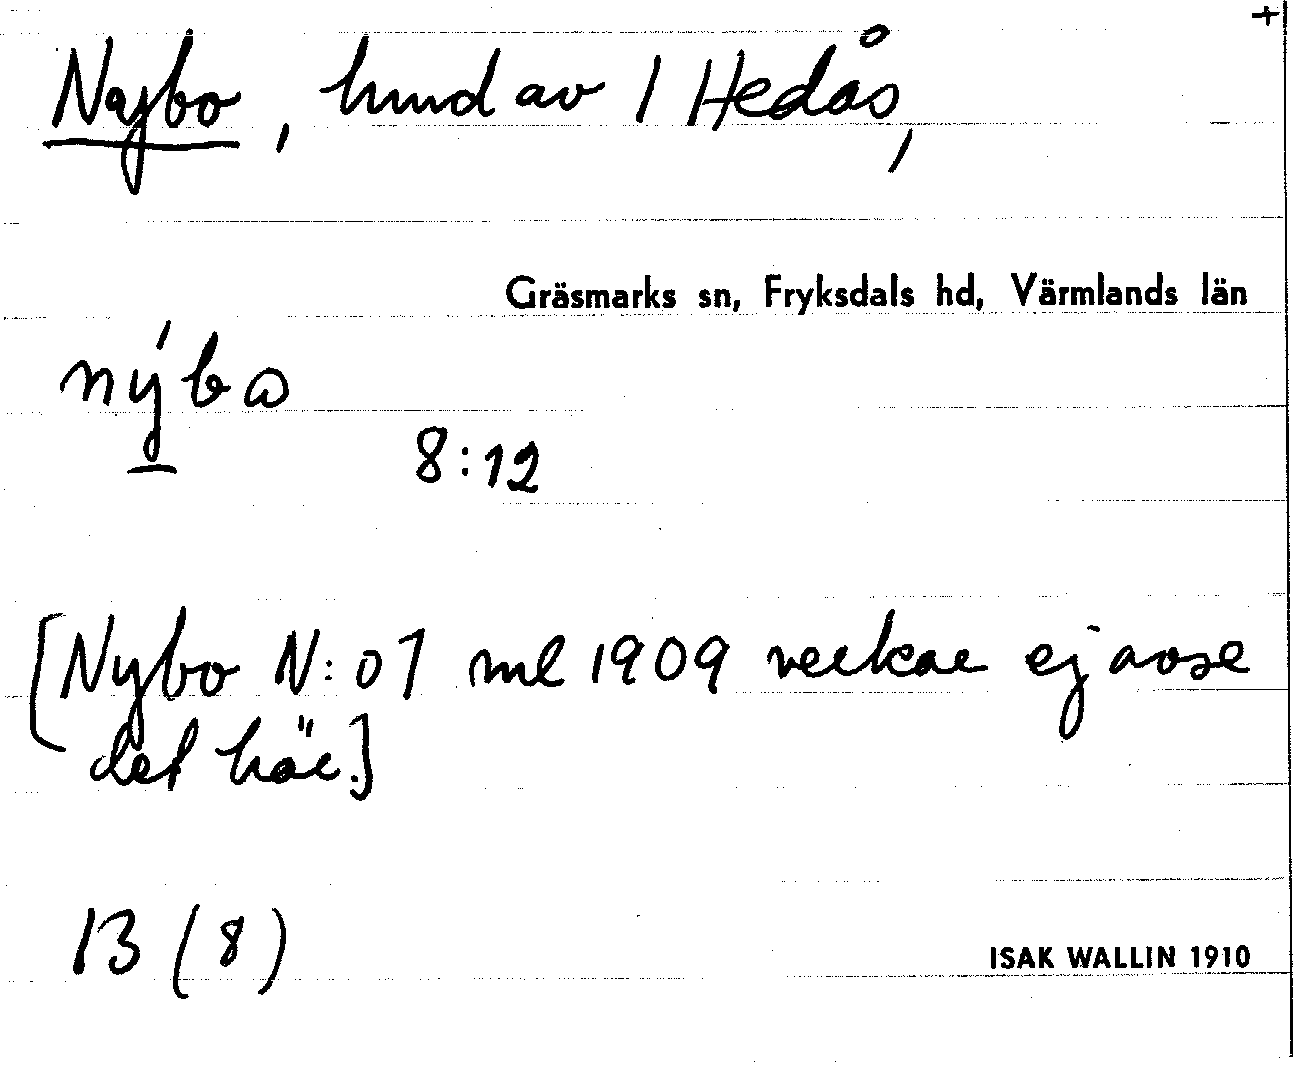 +
Nybo, hmd av 1 Hedås,
Gräsmarks sn, Fryksdals hd, Värmlands län
nýbo
8:12
[Nybo N: 07 ml 1909 verkar ej avse
det här.]
13 (8)
ISAK WALLIN 1910